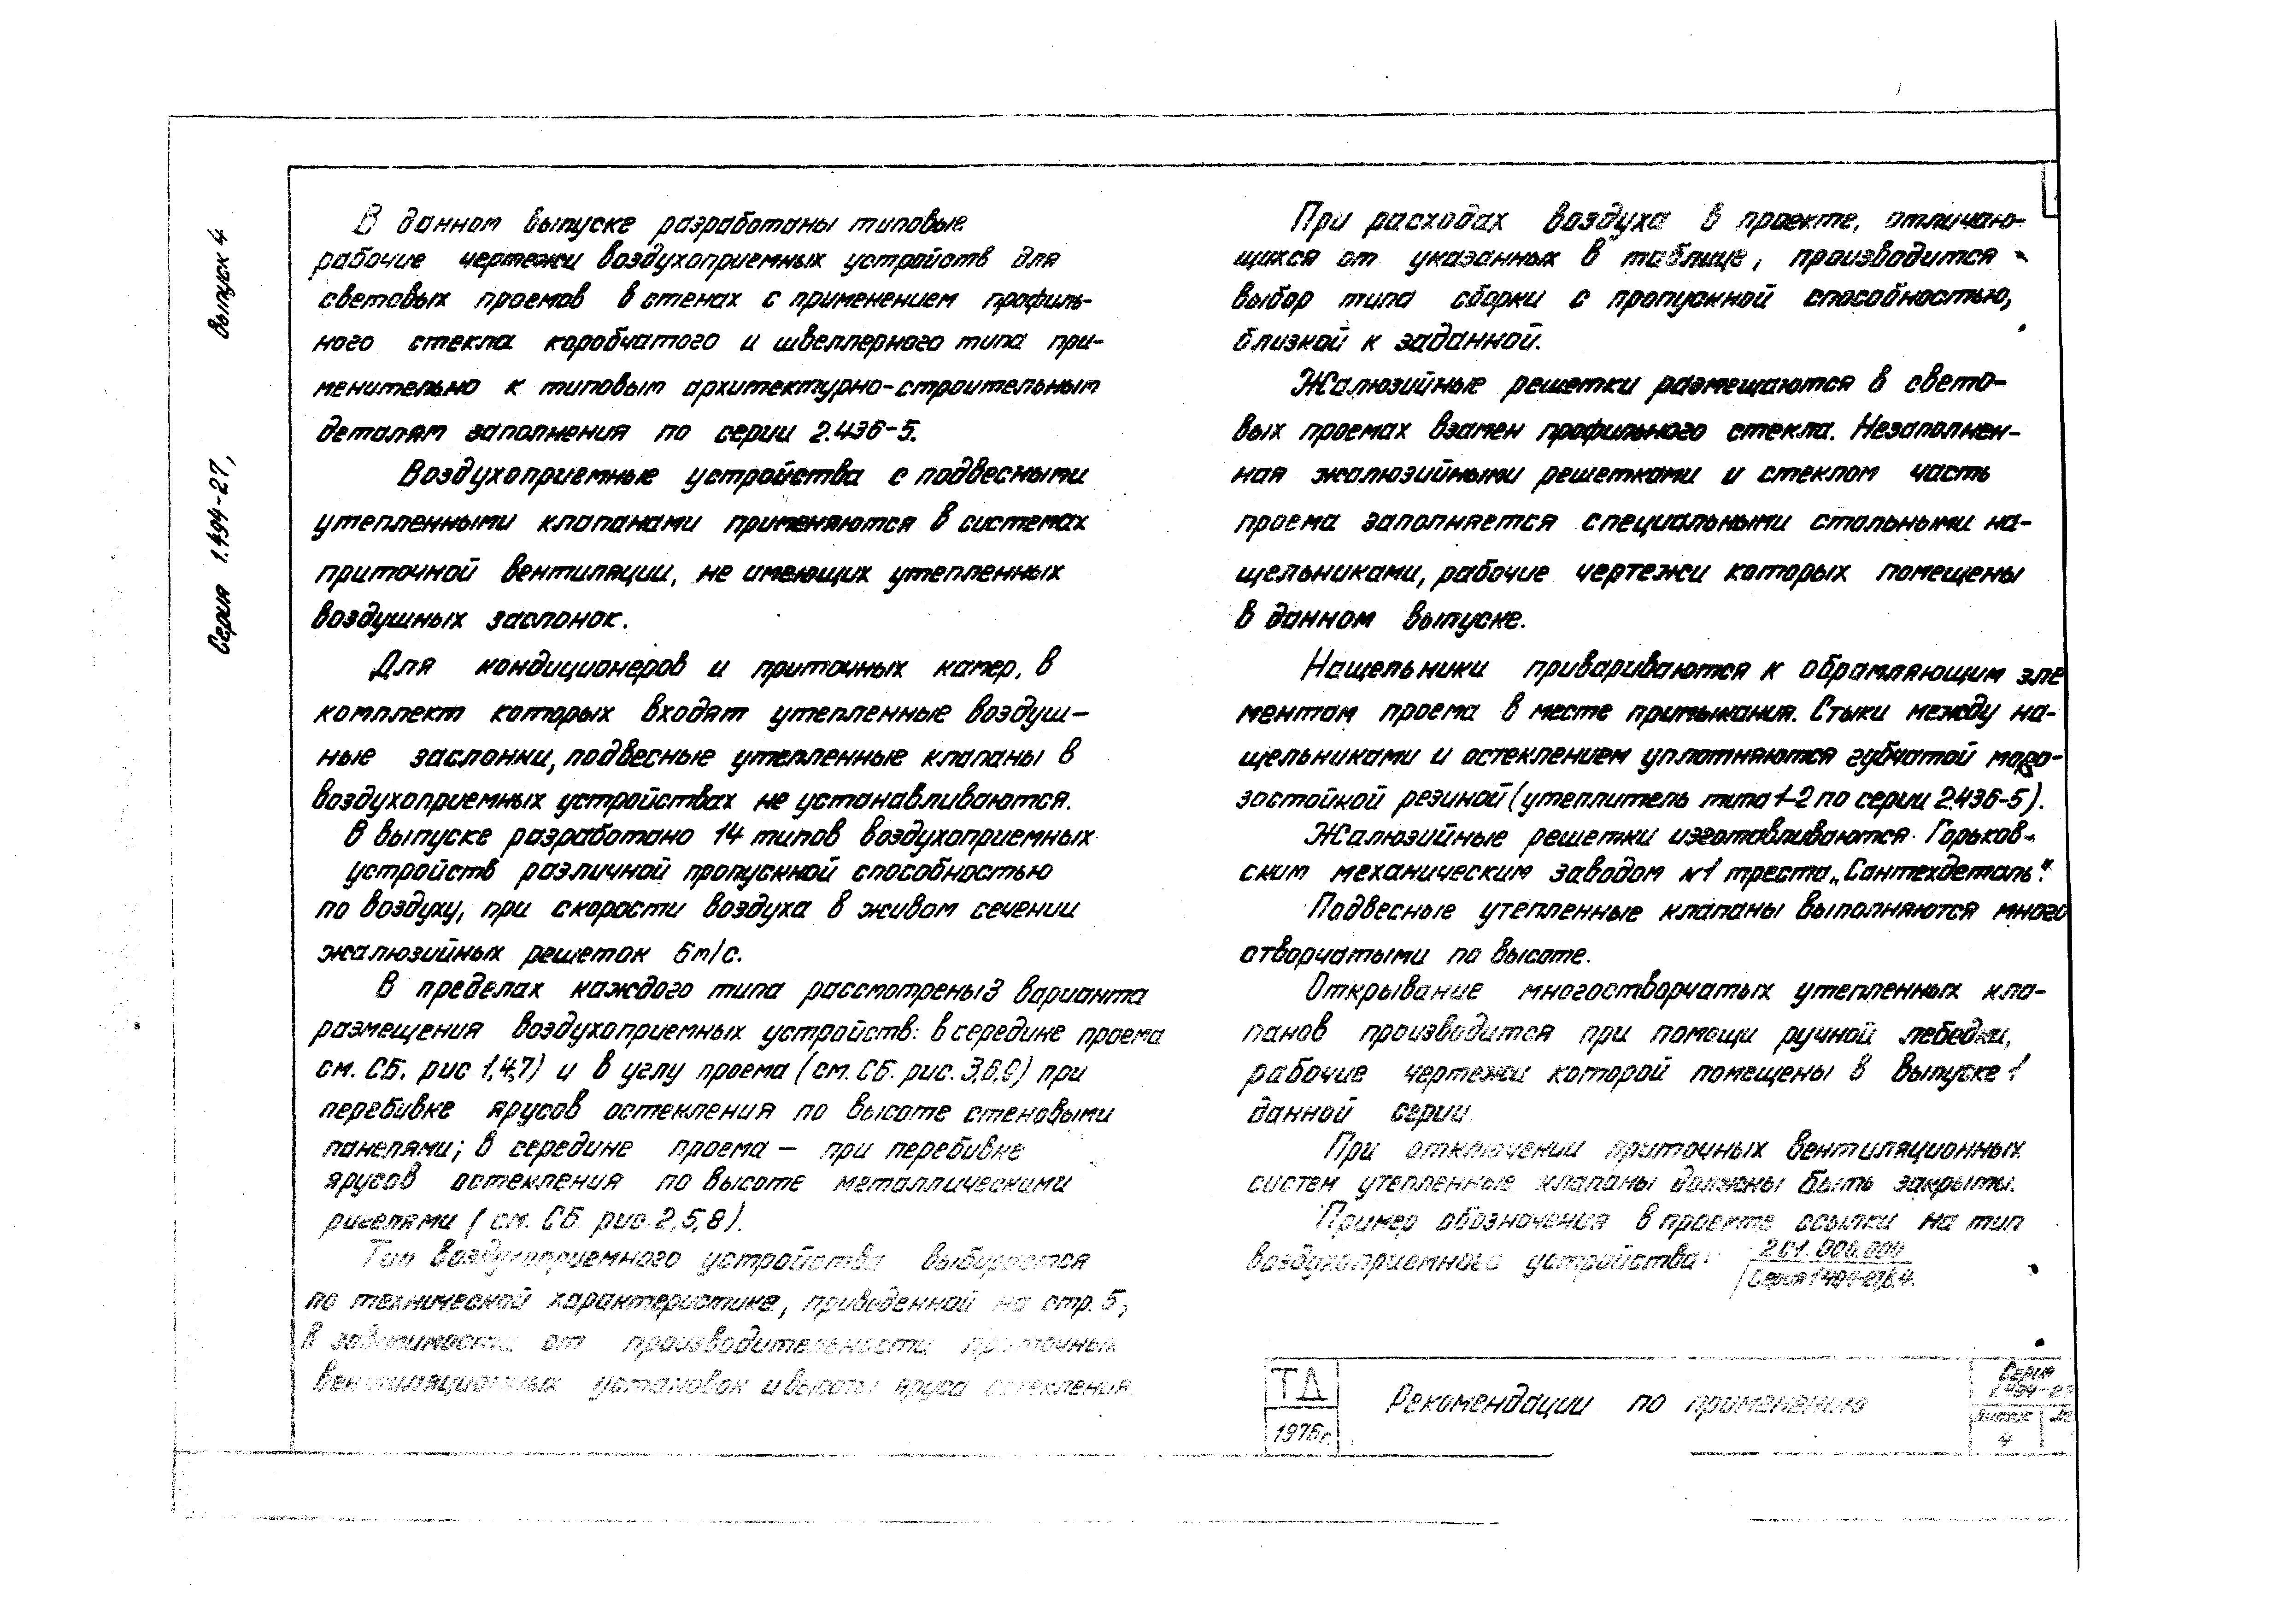 Серия 1.494-27, выпуск 4
В данном выпуске разработаны типовые
рабочие чертежи воздухоприемных устройств для
световых проемов в стенах с применением профиль-
ного стекла коробчатого и швеллерного типа при-
менительно к типовым архитектурно-строительным
деталям заполнения по серии 2.436-5.
Воздухоприемные устройства с подвесными
утепленными клапанами применяются в системах
приточной вентиляции, не имеющих утепленных
воздушных заслонок.
Для кондиционеров и приточных камер, в
комплект которых входят утепленные воздуш-
ные заслонки, подвесные утепленные клапаны в
воздухоприемных устройствах не устанавливаются.
В выпуске разработано 14 типов воздухоприемных
устройств различной пропускной способностью
по воздуху, при скорости воздуха в живом сечении
жалюзийных решеток 6м/с.
В пределах каждого типа рассмотрены 3 варианта
размещения воздухоприемных устройств: в середине проема
см. СБ. рис 1,4,7) и в углу проема (см. СБ. рис. 3,6,9) при
перебивке ярусов остекления по высоте стеновыми
панелями; в середине проема — при перебивке
ярусов остекления по высоте металлическими
ригелями (см. СБ. рис. 2,5,8).
Тип воздухоприемного устройства выбирается
по технической характеристике, приведенной на стр. 5,
в зависимости от производительности приточных
вентиляционных установок и высоты яруса остекления.
При расходах воздуха в проекте, отличаю-
щихся от указанных в таблице, производится
выбор типа сборки с пропускной способностью,
близкой к заданной.
Жалюзийные решетки размещаются в свето-
вых проемах взамен профильного стекла. Незаполнен-
ная жалюзийными решетками и стеклом часть
проема заполняется специальными стальными на-
щельниками, рабочие чертежи которых помещены
в данном выпуске.
Нащельники привариваются к обрамляющим эле
ментам проема в месте примыкания. Стыки между на-
щельниками и остеклением уплотняются губчатой моро-
зостойкой резиной (утеплитель типа 1-2 по серии 2.436-5).
Жалюзийные решетки изготавливаются Горьков-
ским механическим заводом №1 треста „Сантехдеталь".
Подвесные утепленные клапаны выполняются много
створчатыми по высоте.
Открывание многостворчатых утепленных кла-
панов производится при помощи ручной лебедки,
рабочие чертежи которой помещены в выпуске 1
данной серии.
При отключении приточных вентиляционных
систем утепленные клапаны должны быть закрыты.
Пример обозначения в проекте ссылки на тип
воздухоприемного устройства: 2С1.000.000
Серия 1.494-27, в.4.
ТД
1976г.
Рекомендации по применению
Серия
1.494-27
Выпуск
4